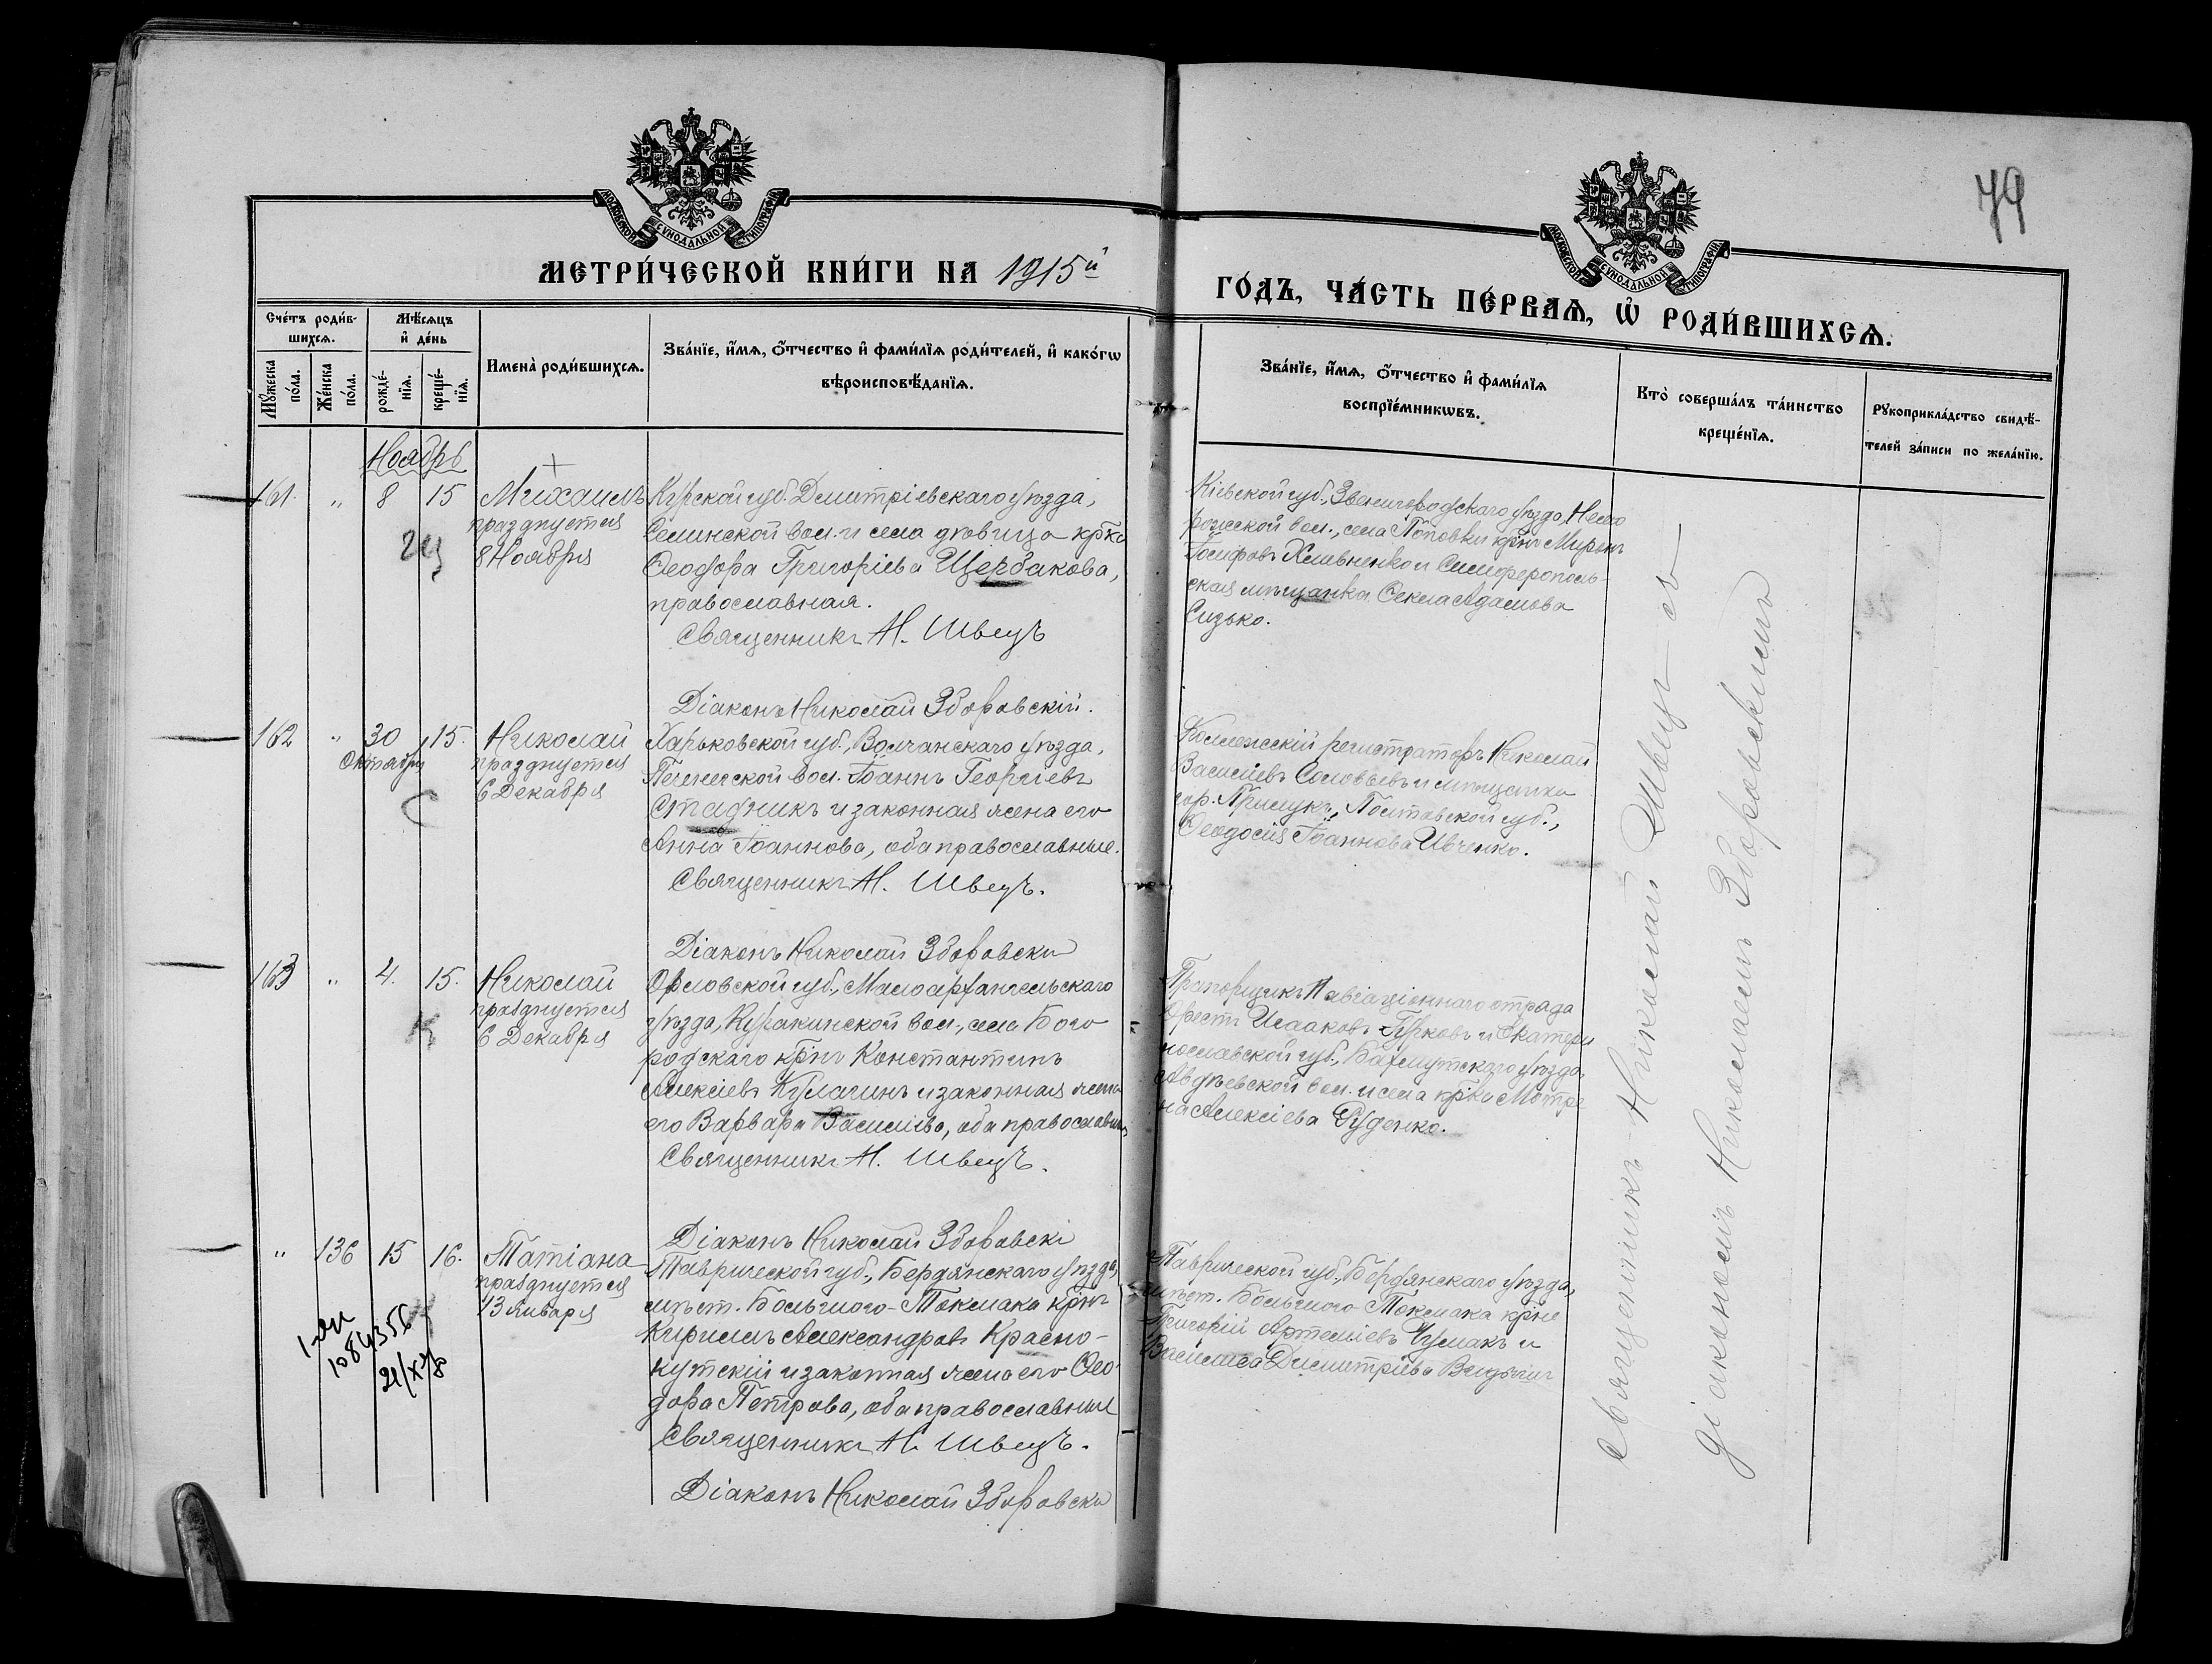 79
МОСКОВСКОЙ СѴНОДАЛЬНОЙ ТИПОГРАФІИ
МОСКОВСКОЙ СѴНОДАЛЬНОЙ ТИПОГРАФІИ
МЕТРИ́ЧЕСКОЙ КНИ́ГИ НА 1915й
ГО́ДЪ, ЧА́СТЬ ПЕ́РВАѦ, Ѡ҆ РОДИ́ВШИХСѦ.
Сче́тъ роди́в-
шихсѧ.
Мѣ́сѧцъ
и҆ де́нь
Мꙋ́жеска
по́ла.
Же́нска
по́ла.
рожде́-
нїѧ.
креще́-
нїѧ.
Имена̀ роди́вшихсѧ.
Зва́нїе, и҆́мѧ, ѻ҆́тчество и҆ фами́лїѧ роди́телей, и҆ како́гѡ
вѣроисповѣ́данїѧ.
Зва́нїе, и҆́мѧ, ѻ҆́тчество и҆ фами́лїѧ
воспрїе́мникѡвъ.
Кто̀ соверша́лъ та́инство
креще́нїѧ.
Рꙋкоприкла́дство свидѣ́-
телей за́писи по жела́нїю.
Ноябрь
161. " 8 15
Михаилъ
празднуется
8 Ноября
Курской губ. Дмитріевскаго уѣзда,
Селинской вол. и села дѣвица крка
Ѳеодора Григоріева Щербакова,
православная.
Священникъ Н. Швецъ
Діаконъ Николай Зборовскій.
Кіевской губ., Звенигородскаго уѣзда,
вол., села Поповки крнъ Миронъ
Іосифовъ Хмельненко и Симферополь-
ская мѣщанка Ѳекла Адамова
Сизько.
162 " 30 15.
Октября
Николай
празднуется
6 Декабря
Харьковской губ., Волчанскаго уѣзда,
Печенегской вол. Іоаннъ Георгіевъ
Стадникъ и законная жена его
Анна Іоаннова, оба православные.
Священникъ Н. Швецъ.
Діаконъ Николай Зборовскі
Коллежскій регистраторъ Николай
Василіевъ Соловьевъ и мѣщанка
гор. Прилукъ, Полтавской губ.,
Ѳеодосія Іоаннова Ивченко.
163 " 4. 15.
Николай
празднуется
6 Декабря
Орловской губ., Малоархангельскаго
уѣзда, Куракинской вол., села Бого
родскаго крнъ Константинъ
Алексіевъ Кулагинъ и законная жена
его Варвара Василіева, оба православные
Священникъ Н. Швецъ.
Діаконъ Николай Зборовскі
Прапорщикъ авіаціоннаго отряда
Орестъ Исааковъ Турковъ и Екатери
нославской губ., Бахмутскаго уѣзда
Авдѣевской вол. и села крка Матре
на Алексіева Руденко.
" 136 15 16.
Татіана
празднуется
13 Января
1084356
Таврической губ., Бердянскаго уѣзда,
мѣст. Большого-Токмака крнъ
Кириллъ Александровъ Красно-
кутскій и законная жена его Ѳео
дора Петрова, оба православные
Священникъ Н. Швецъ.
Діаконъ Николай Зборовскі
Таврической губ., Бердянскаго уѣзда,
мѣст. Большого-Токмака крне
Григорій Артеміевъ Чумакъ и
Василиса Димитріева
Священникъ Николай Швецъ съ
діакономъ Николаемъ Зборовскимъ